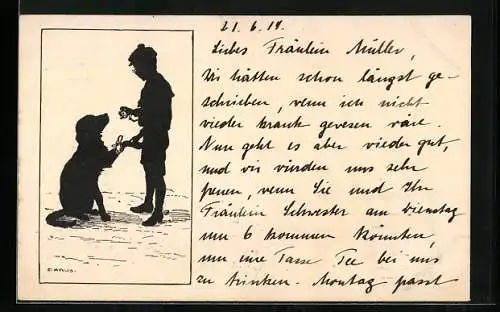 21. 6. 18.
Liebes Fräulein Müller,
Wir hätten schon längst ge-
schrieben, wenn ich nicht
wieder krank gewesen wäre.
Nun geht es aber wieder gut,
und wir würden uns sehr
freuen, wenn Sie und Ihr
Fräulein Schwester am Dienstag
um 6 kommen könnten,
um eine Tasse Tee bei uns
zu trinken. Montag passt